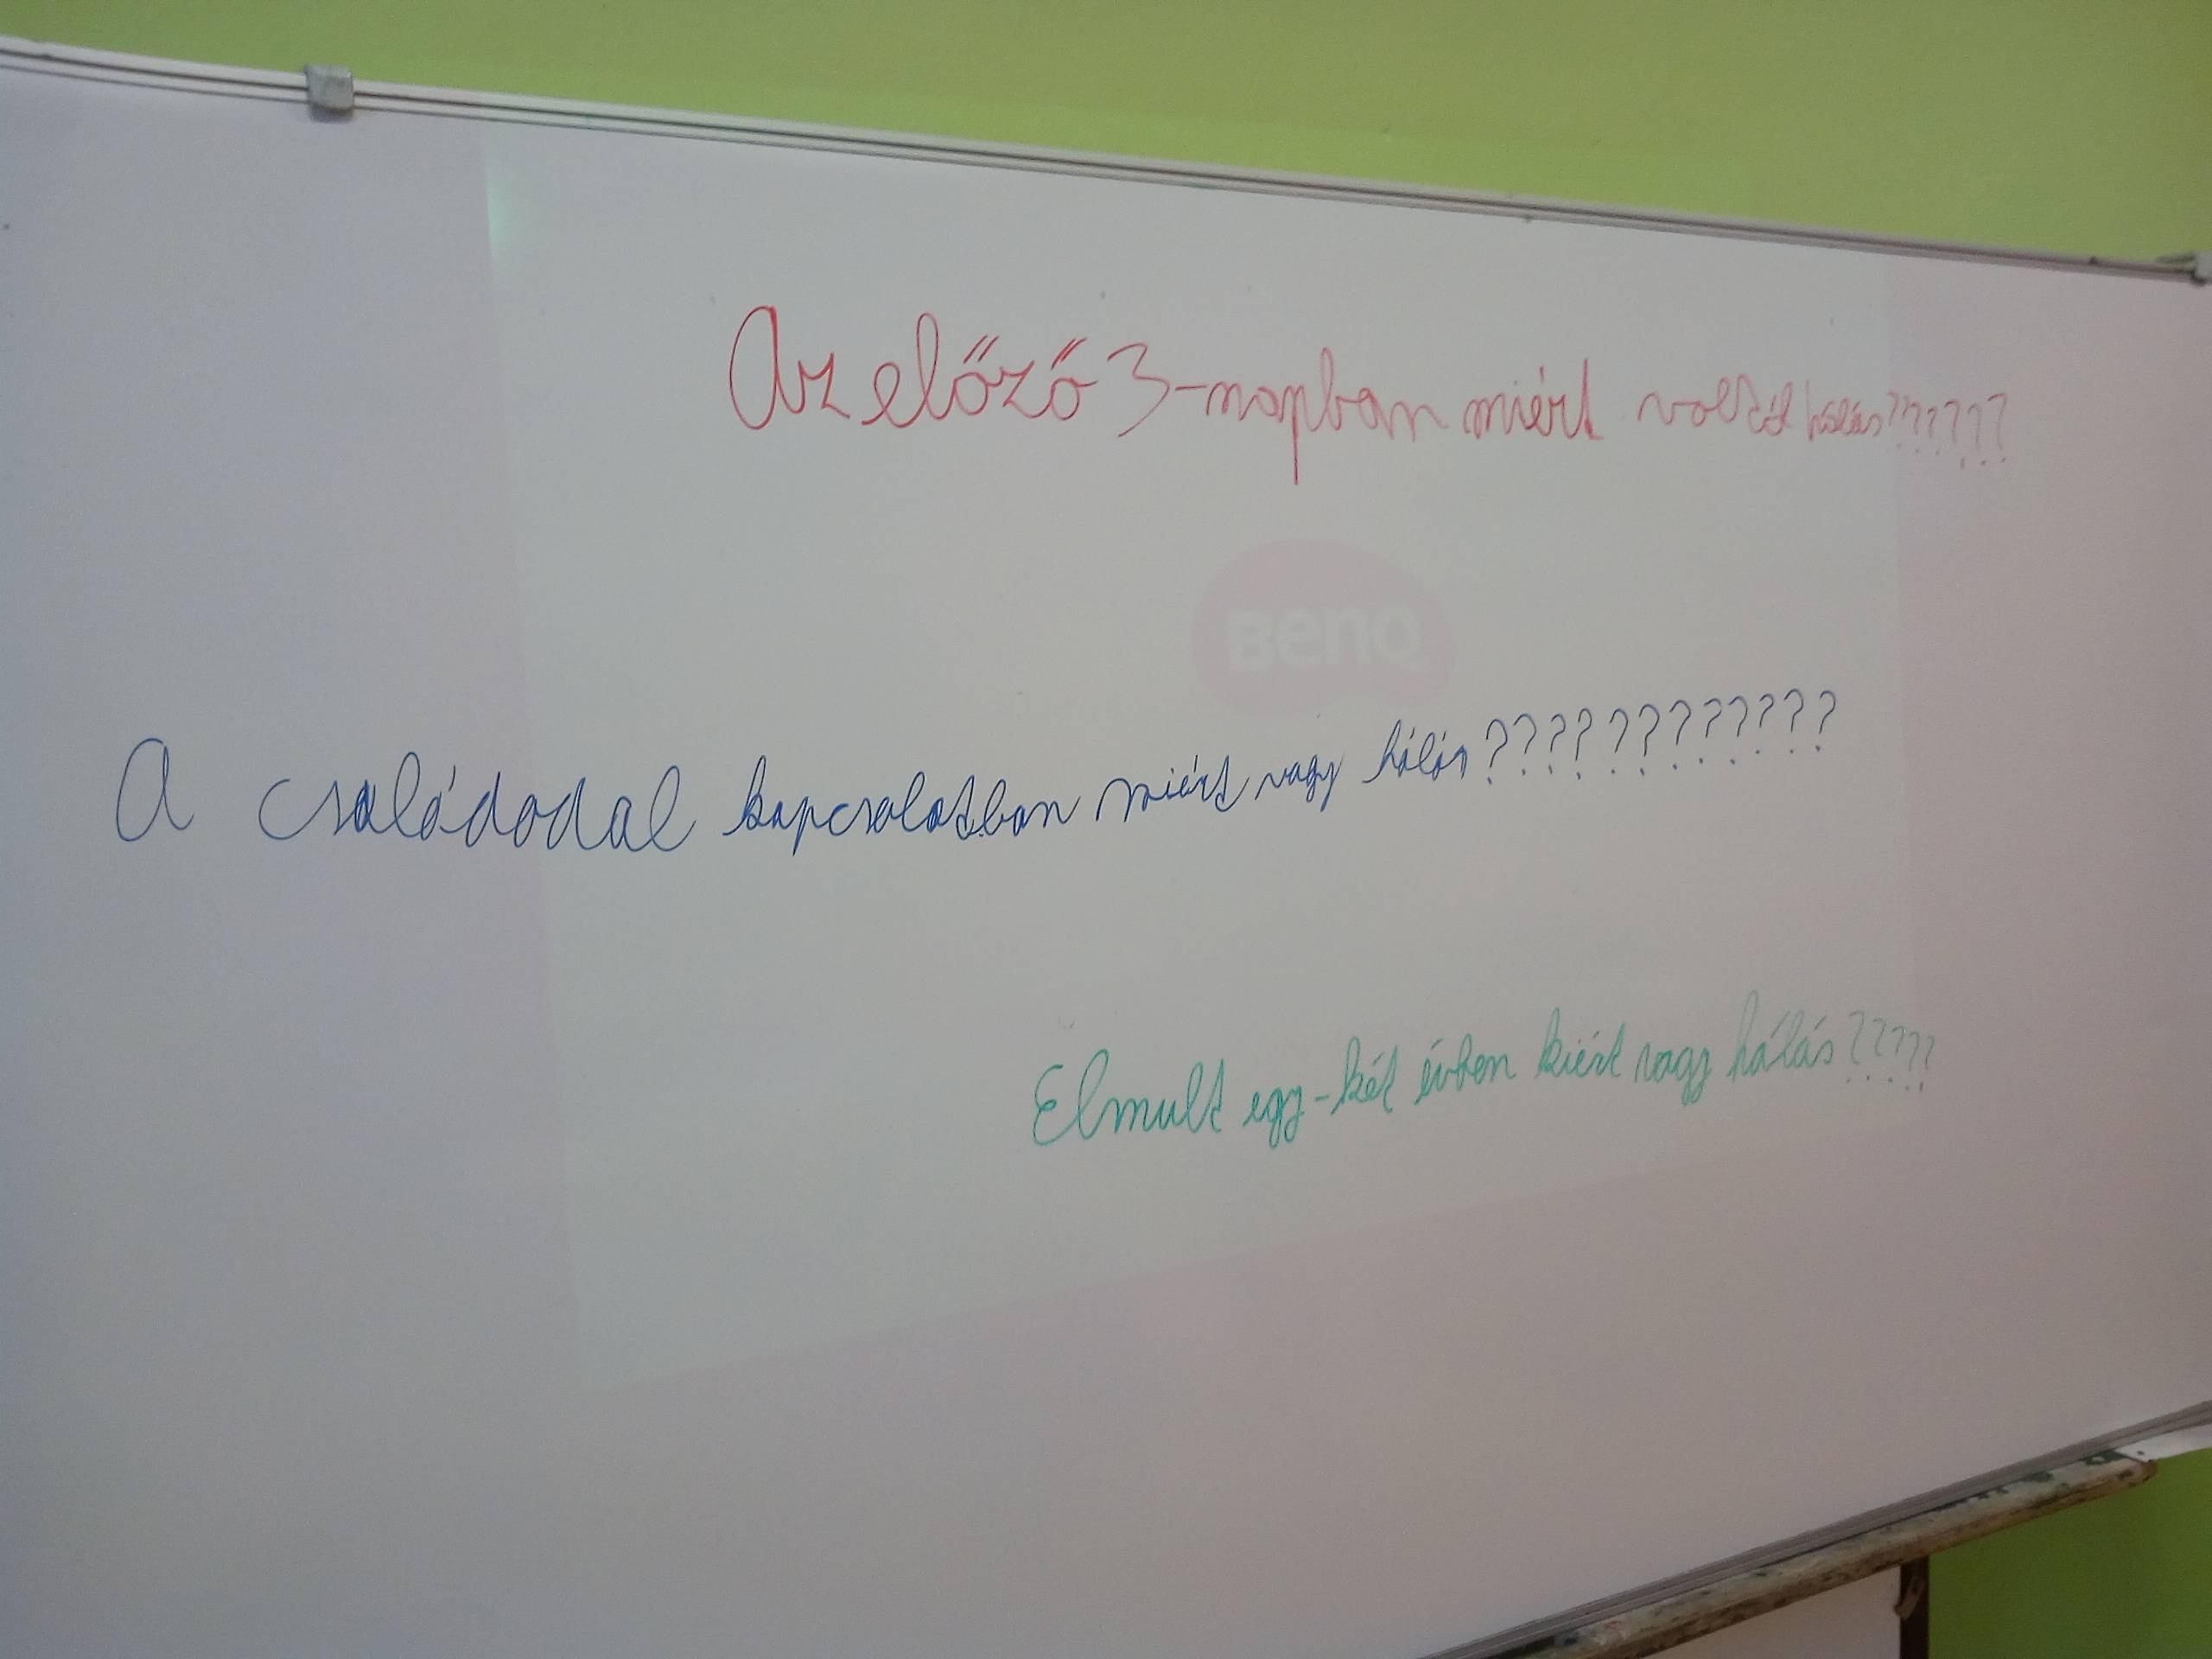 Az előző 3-napban miért voltál hálás??????
BenQ
A családodal kapcsolatban miért vagy hálás????????????
Elmult egy-két évben kiért vagy hálás?????